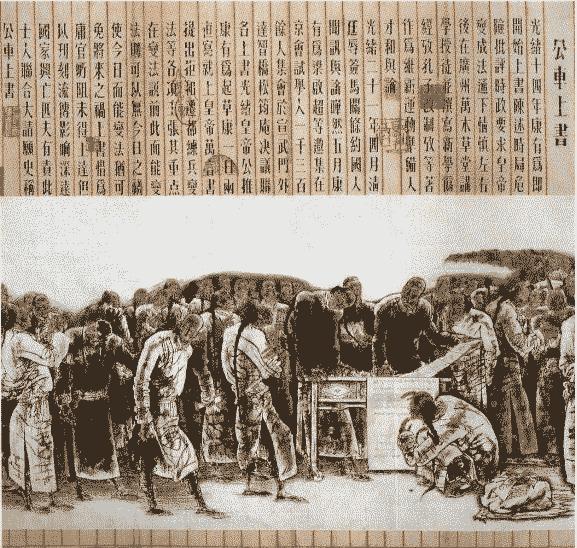 公車上書
光緒十四年康有爲即
開始上書陳述時局危
險批評時政要求皇帝
變成法通下情慎左右
後在廣州萬木草堂講
學授徒並撰寫新學僞
經攷孔子改制攷等著
作爲維新運動準備人
才和輿論
光緒二十一年四月淸
廷辱簽馬關條約國人
聞訊輿論嘩然五月康
有爲梁啟超等邀集在
京會試舉人一千三百
餘人集會於宣武門外
達智橋松筠庵決議聯
名上書光緒皇帝公推
康有爲起草康一日兩
書寫就上皇帝萬書
提出拒和遷都練兵變
法等各項主張其重點
在變法認前此而能變
法則可以無今日之禍
使今日而能變法猶可
免將來之禍上書雖爲
庸官所阻未得上達但
刻流傳影響深遠
國家興亡匹夫有責此
士人聯合大請願史稱
公車上書